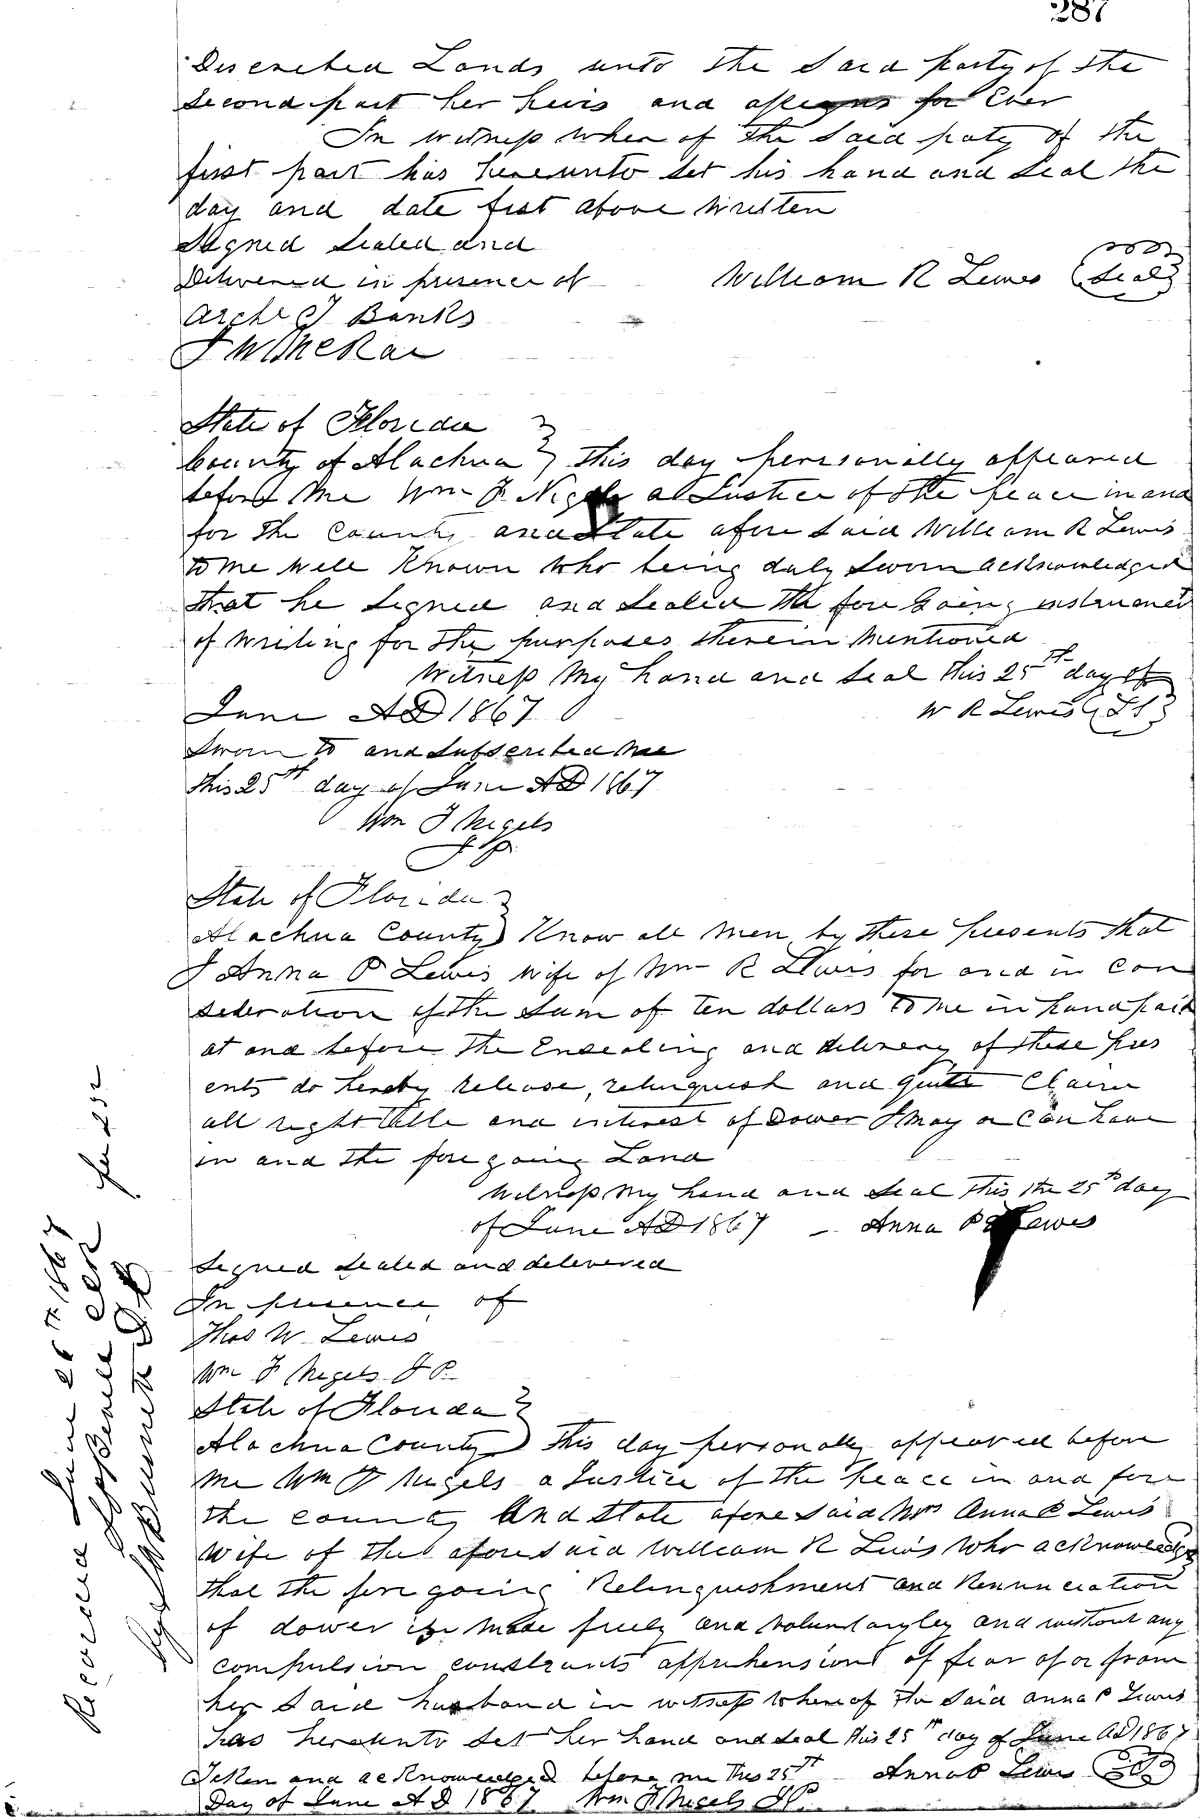 287
Discribed Lands unto the Said party of the
Second part her heirs and assigns for Ever
In witness when of the Said paty of the
first part has hereunto set his hand and Seal the
day and date fist above Written
Signed Sealed and
Delivered in presence of William R Lewis (Seal)
Arche T Banks
J W McRae
State of Florida }
County of Alachua } This day personally appeared
before Me Wm F. Nigels a Justice of the peace in and
for the County and State afore Said William R Lewis
to me well Known who being duly Sworn acknowledged
that he Signed and Sealed the fore Going instrument
of writing for the purposes therein Mentioned
Witness My hand and Seal this 25th day of
June AD 1867 W R Lewis (LS)
Sworn to and Subscribed me
this 25th day of June AD 1867
Wm F Nigels
J P.
State of Florida }
Alachua County } Know all Men by these presents that
I Anna P Lewis wife of Wm R Lewis for and in Con
sideration of the Sum of ten dollars to me in hand paid
at and before the Ensealing and delivery of these pres
ents do hereby release, relinquish and quite Claim
all right title and interest of Dower I may or Can have
in and the fore going Land
Witness My hand and Seal this the 25th day
of June AD 1867 – Anna P Lewis
Signed Sealed and delivered
In presence of
Thos W. Lewis
Wm F Nigels J P.
State of Florida }
Alachua County } This day personally appeared before
Me Wm F Nigels a Justice of the peace in and fore
the county And State afore Said Mrs Anna P Lewis
Wife of the afore Said William R Lewis Who acknowledge
that the fore going Relinquishment and Renunciation
of dower is Made freely and voluntargley and without any
compulsion constraints apprihension of fear of or from
her Said husband in witness whereof the Said Anna P Lewis
has hereunto Set her hand and Seal this 25th day of June AD 1867
Taken and acknowledged before me this 25th Anna P Lewis (LS)
Day of June AD 1867 Wm F Nigels J P.
Recorded June 26th 1867
Clerk fee
by Burnett D.C